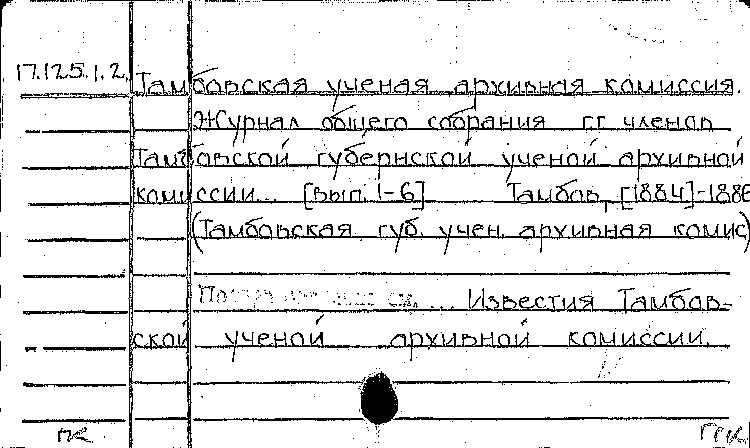 17.125.1.2. Тамбовская ученая архивная комиссия.
Журнал общего собрания г.г. членов
Тамбовской губернской ученой архивной
комиссии... [Вып. 1-6] Тамбов, [1884]-1886
(Тамбовская губ. учен. архивная комис)
см. ... Известия Тамбов-
ской ученой архивной комиссии.
ПК